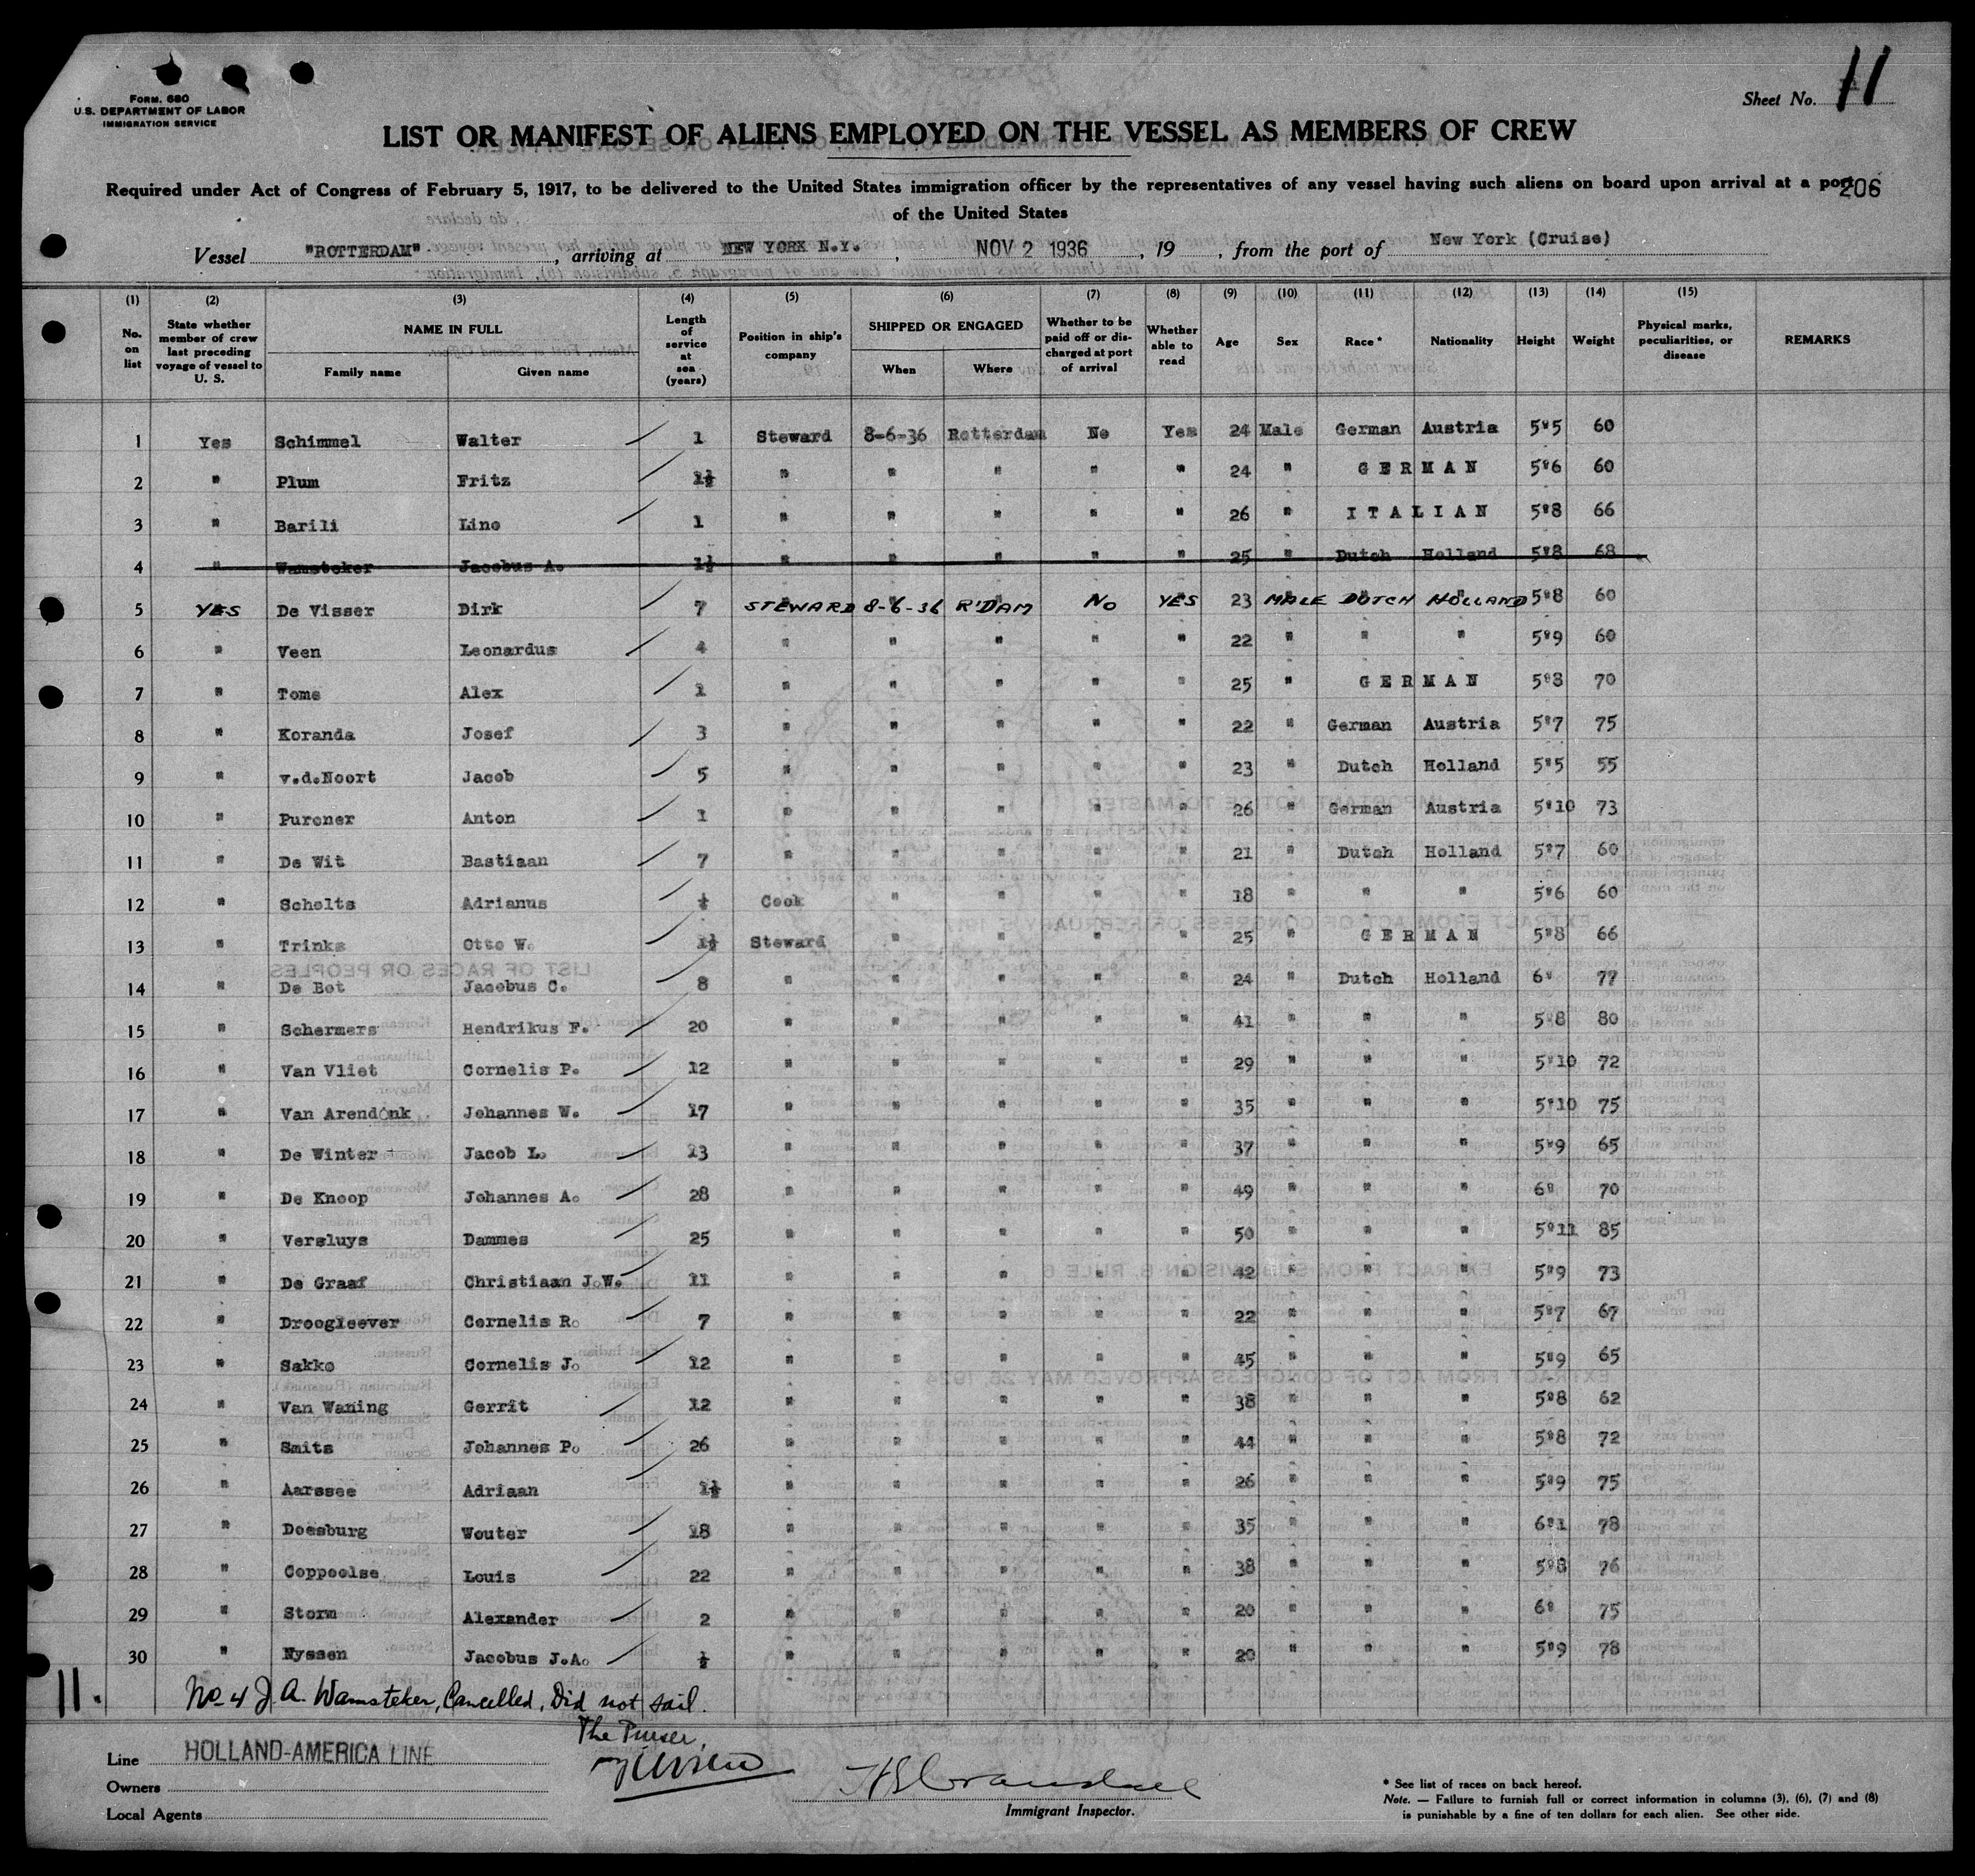 FORM. 680
U.S. DEPARTMENT OF LABOR
IMMIGRATION SERVICE
Sheet No. 11
LIST OR MANIFEST OF ALIENS EMPLOYED ON THE VESSEL AS MEMBERS OF CREW
Required under Act of Congress of February 5, 1917, to be delivered to the United States immigration officer by the representatives of any vessel having such aliens on board upon arrival at a port
206
of the United States
Vessel "ROTTERDAM", arriving at NEW YORK N.Y., NOV 2 1936, 19 , from the port of New York (Cruise)
(1) (2) (3) (4) (5) (6) (7) (8) (9) (10) (11) (12) (13) (14) (15)
No. on list State whether member of crew last preceding voyage of vessel to U. S. NAME IN FULL Family name Given name Length of service at sea (years) Position in ship's company SHIPPED OR ENGAGED When Where Whether to be paid off or discharged at port of arrival Whether able to read Age Sex Race * Nationality Height Weight Physical marks, peculiarities, or disease REMARKS
1 Yes Schimmel Walter 1 Steward 8-6-36 Rotterdam No Yes 24 Male German Austria 5"5 60
2 " Plum Fritz 1½ " " " " " 24 " GERMAN 5"6 60
3 " Barili Lino 1 " " " " " 26 " ITALIAN 5"8 66
4 " Wamsteker Jacobus A. 1½ " " " " " 25 " Dutch Holland 5"8 68
5 YES De Visser Dirk 7 STEWARD 8-6-36 R'DAM No YES 23 MALE DUTCH HOLLAND 5"8 60
6 " Veen Leonardus 4 " " " " " 22 " " " 5"9 60
7 " Toms Alex 1 " " " " " 25 " GERMAN 5"8 70
8 " Koranda Josef 3 " " " " " 22 " German Austria 5"7 75
9 " v.d.Noort Jacob 5 " " " " " 23 " Dutch Holland 5"5 55
10 " Purcner Anton 1 " " " " " 26 " German Austria 5"10 73
11 " De Wit Bastiaan 7 " " " " " 21 " Dutch Holland 5"7 60
12 " Scholts Adrianus ½ Cook " " " " 18 " " " 5"6 60
13 " Trinks Otto W. 1½ Steward " " " " 25 " GERMAN 5"8 66
14 " De Bot Jacobus C. 8 " " " " " 24 " Dutch Holland 6" 77
15 " Schermers Hendrikus F. 20 " " " " " 41 " " " 5"8 80
16 " Van Vliet Cornelis P. 12 " " " " " 29 " " " 5"10 72
17 " Van Arendonk Johannes W. 17 " " " " " 35 " " " 5"10 75
18 " De Winter Jacob L. 13 " " " " " 37 " " " 5"9 65
19 " De Knoop Johannes A. 28 " " " " " 49 " " " 6" 70
20 " Versluys Dammes 25 " " " " " 50 " " " 5"11 85
21 " De Graaf Christiaan J.W. 11 " " " " " 42 " " " 5"9 73
22 " Droogleever Cornelis R. 7 " " " " " 22 " " " 5"7 67
23 " Sakko Cornelis J. 12 " " " " " 45 " " " 5"9 65
24 " Van Waning Gerrit 12 " " " " " 38 " " " 5"8 62
25 " Smits Johannes P. 26 " " " " " 44 " " " 5"8 72
26 " Aarssee Adriaan 1½ " " " " " 26 " " " 5"9 75
27 " Doesburg Wouter 18 " " " " " 35 " " " 6"1 78
28 " Coppoolse Louis 22 " " " " " 38 " " " 5"8 76
29 " Storm Alexander 2 " " " " " 20 " " " 6" 75
30 " Nyssen Jacobus J.A. ½ " " " " " 20 " " " 5"9 78
11. No 4 J. A. Wamsteker, Cancelled, Did not sail.
The Purser,
Line HOLLAND-AMERICA LINE
Owners
Local Agents
Immigrant Inspector.
* See list of races on back hereof.
Note. — Failure to furnish full or correct information in columns (3), (6), (7) and (8)
is punishable by a fine of ten dollars for each alien. See other side.